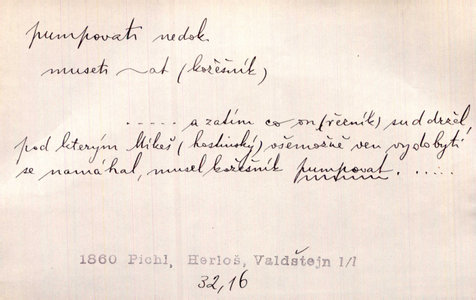 pumpovati nedok.
museti ~at (kožešník)
..... a zatím co on (řezník) sud držel,
pod kterým Mikeš (hostinský) všemožně ven vydobýti
se namáhal, musel kožešník pumpovat.....
1860 Pichl, Herloš, Valdštejn 1/1
32,16